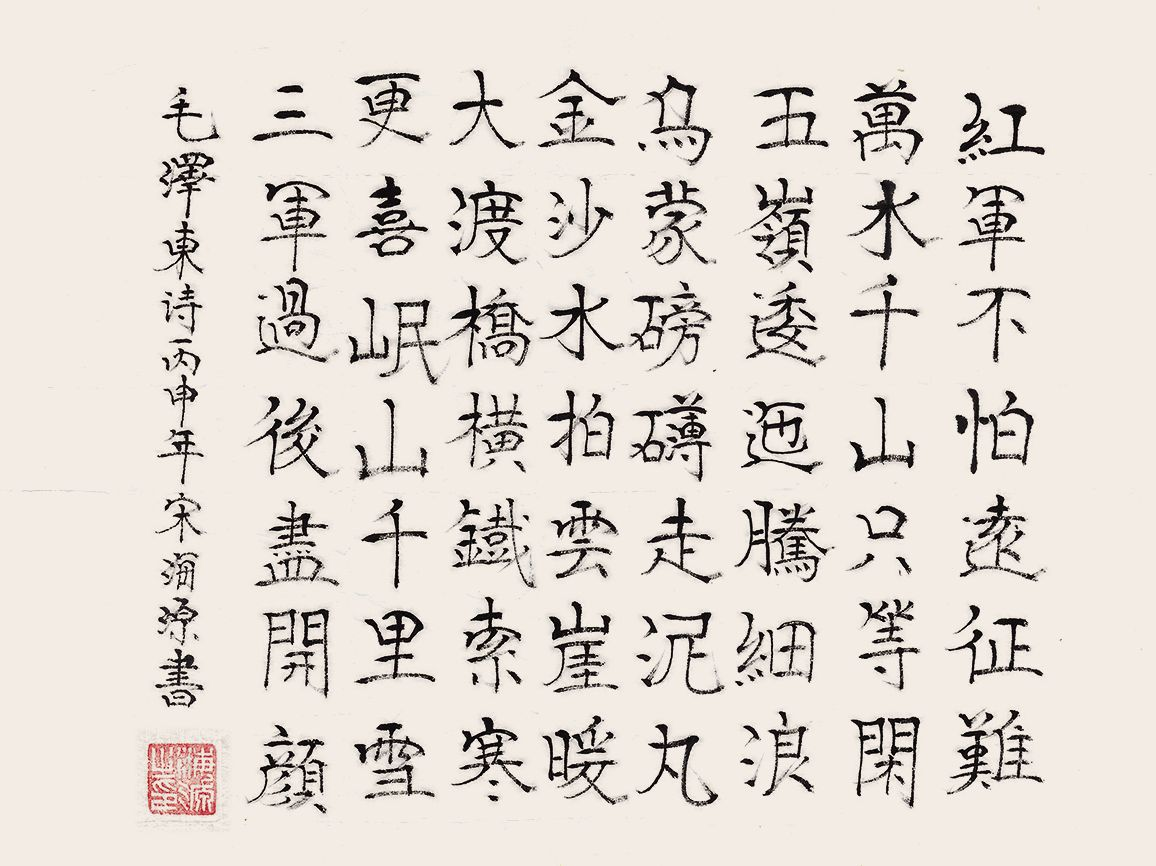 紅軍不怕遠征難
萬水千山只等閑
五嶺逶迤騰細浪
烏蒙磅礴走泥丸
金沙水拍雲崖暖
大渡橋橫鐵索寒
更喜岷山千里雪
三軍過後盡開顏
毛澤東诗丙申年宋海源書
海源之印